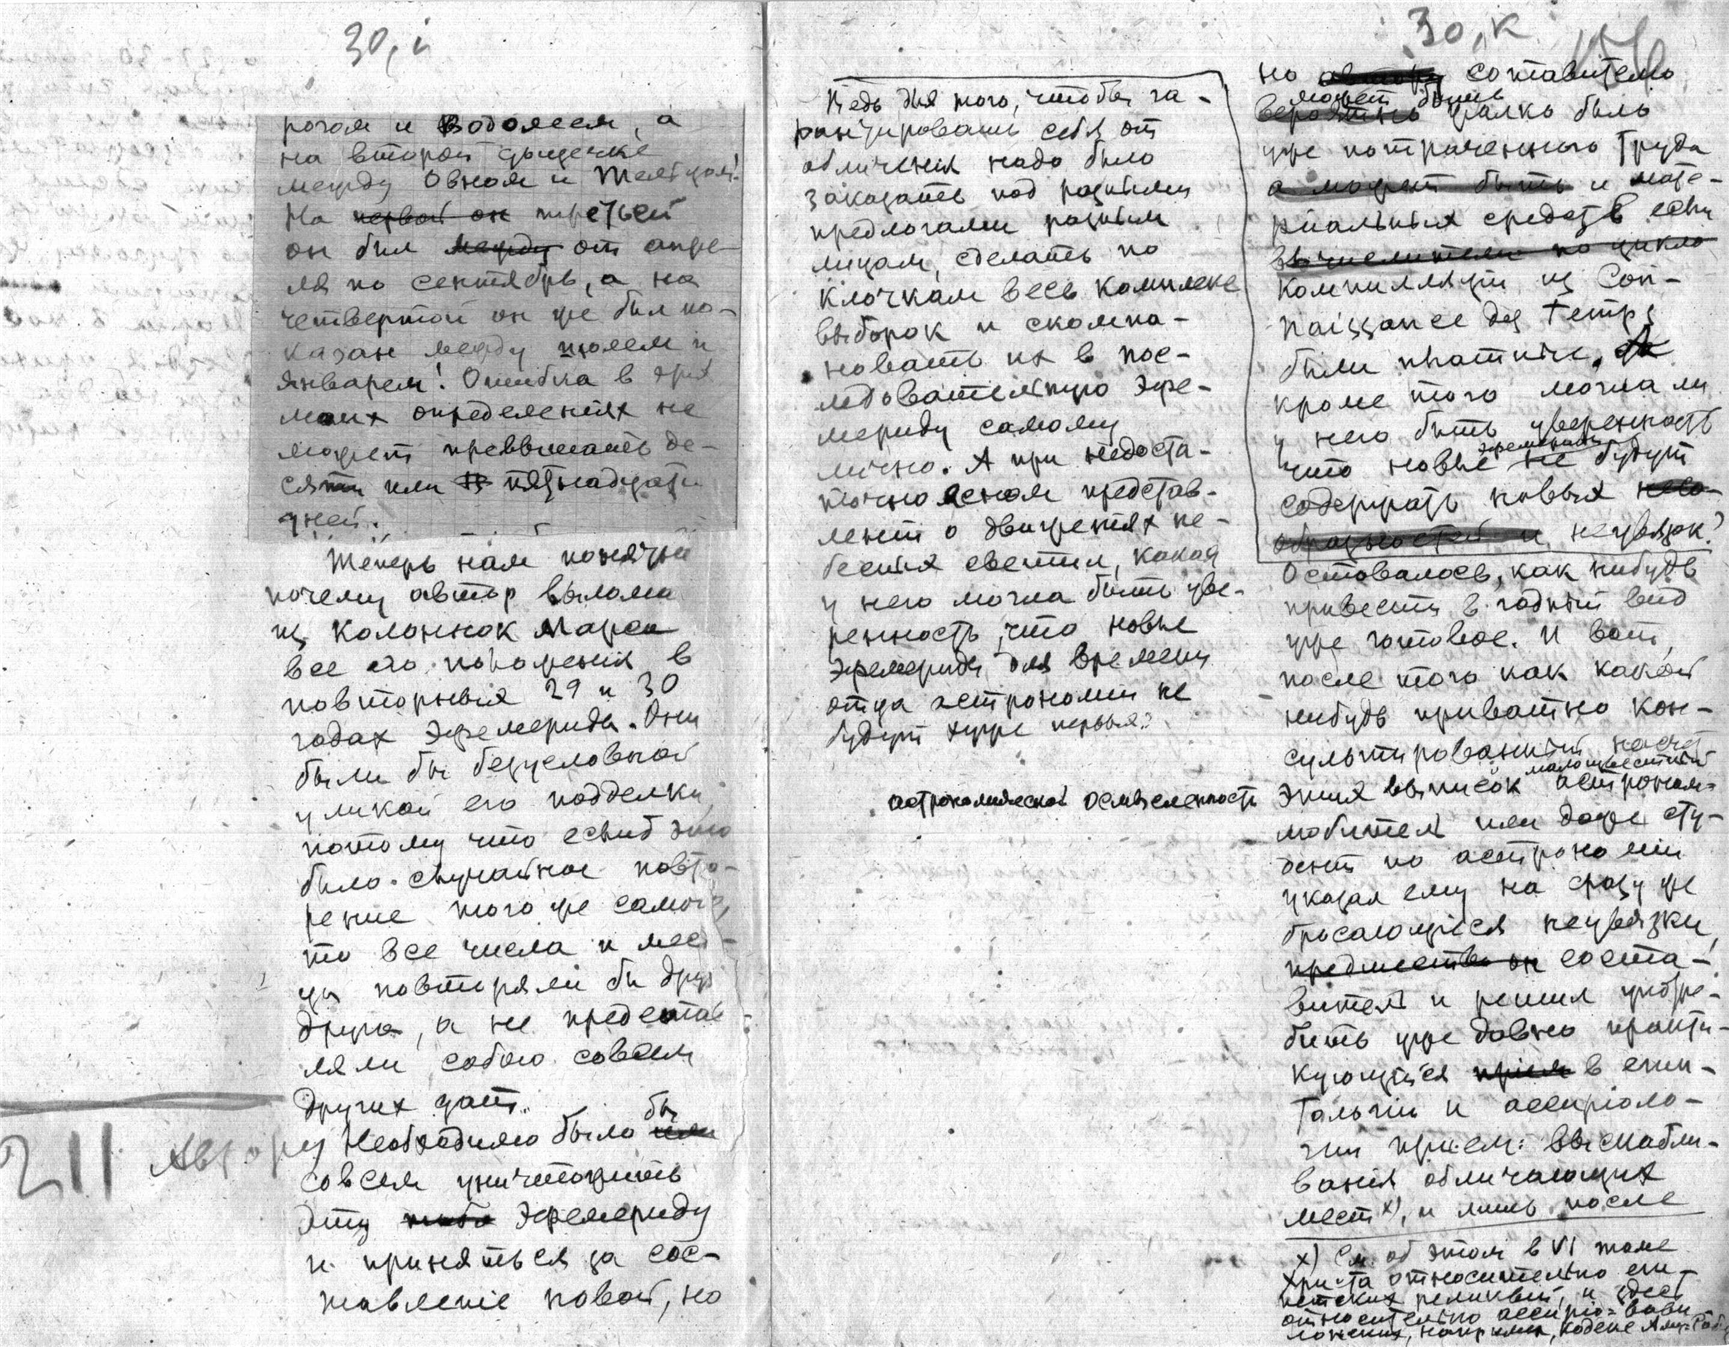 30, i
рогом и Водолеем, а
на второй дощечке
между Овном и Тельцом!
На первой он третьей
он был между от апре-
ля по сентябрь, а на
четвертой он уже был по-
казан между июлем и
январем! Ошибка в этих
моих определениях не
может превышать де-
сяти или пятнадцати
дней.
Теперь нам понятно
почему автор выломал
из колонок Марса
все его положения в
повторных 29 и 30
годах Эфемериды. Они
были бы безусловной
уликой его подделки,
потому что если б это
было случайное повто-
рение того же самого,
то все числа и меся-
цы повторяли бы друг
друга, а не представ-
ляли собою совсем
других дат.
211 Автору Необходимо было бы или
совсем уничтожить
эту Эфемериду
и приняться за сос-
тавление новой, но
Ведь для того, чтобы га-
рантировать себя от
обличения надо было
заказать под разными
предлогами разным
лицам, сделать по
клочкам весь комплекс
выборок и скомпа-
новать их в пос-
ледовательную Эфе-
мериду самому
лично. А при недоста-
точно ясном представ-
лении о движениях не-
бесных светил, какая
у него могла быть уве-
ренность, что новые
эфемериды для времени
отца астрономии не
будут хуже первых?
астрономической осмысленности
30, к
но автору составителю
может быть
вероятно жалко было
уже потраченного труда
а может быть и мате-
риальных средств если
вычислители по цикло
компиляции из Con-
naissance des Temps
были платные. Да
кроме того могла ли
у него быть уверенность
эфемериды
что новые не будут
содержать новых несо-
образностей и неувязок?
Оставалось, как нибудь
привести в годный вид
уже готовое. И вот,
после того как какой
нибудь приватно кон-
сультированный насчет
малоизвестный
этих выписок астроном-
любитель или даже сту-
дент по астрономии
указал ему на сразу же
бросающиеся неувязки,
предшество он соста-
витель и решил употре-
бить уже давно практи-
кующийся прием в еги-
тологии и ассириоло-
гии прием: выскабли-
вания обличающих
мест х), и лишь после
х) См. об этом в VI томе
Христа относительно еги-
петских реликвий, и здесь
относительно ассирио-вави
лонских, например, кодекс